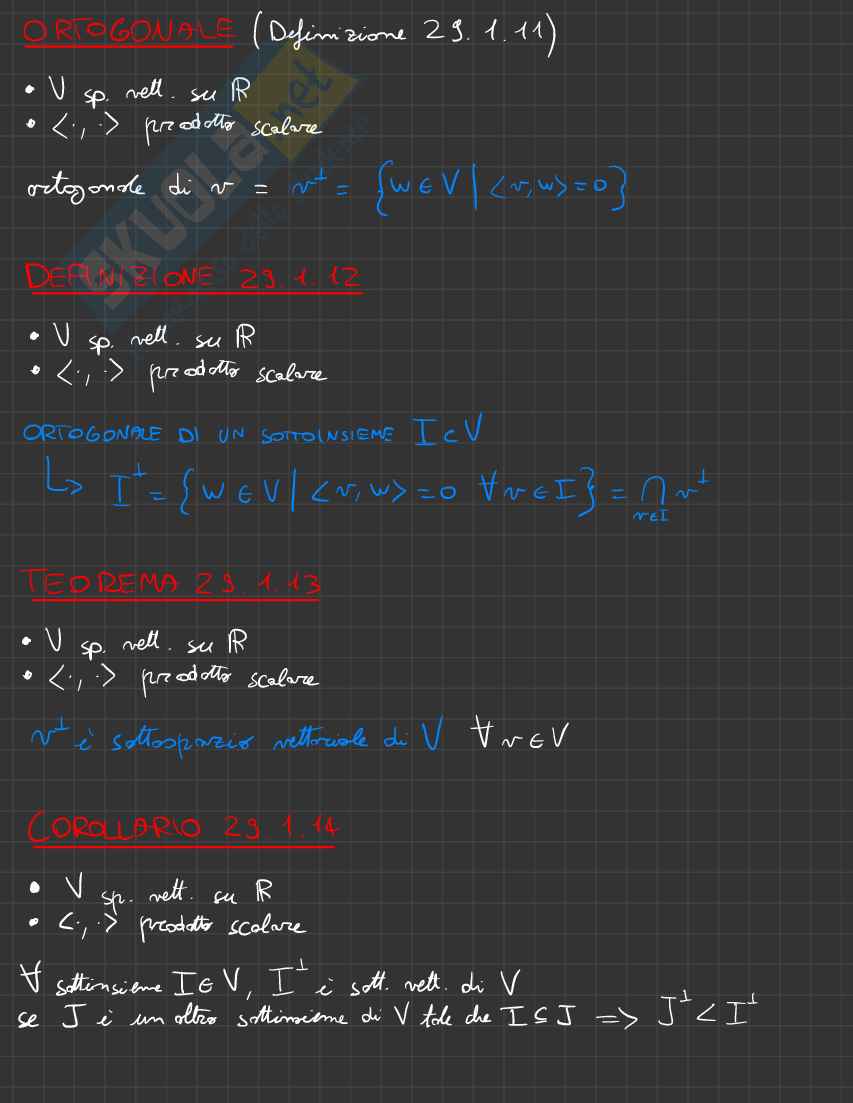 ORTOGONALE (Definizione 29.1.11)
• V sp. vett. su ℝ
• <·,·> prodotto scalare
ortogonale di v = v⊥ = {w ∈ V | <v,w> = 0}
DEFINIZIONE 29.1.12
• V sp. vett. su ℝ
• <·,·> prodotto scalare
ORTOGONALE DI UN SOTTOINSIEME I ⊂ V
↳ I⊥ = {w ∈ V | <v,w> = 0 ∀ v ∈ I} = ⋂ v∈I v⊥
TEOREMA 29.1.13
• V sp. vett. su ℝ
• <·,·> prodotto scalare
v⊥ è sottospazio vettoriale di V ∀ v ∈ V
COROLLARIO 29.1.14
• V sp. vett. su ℝ
• <·,·> prodotto scalare
∀ sottinsieme I ∈ V, I⊥ è sott. vett. di V
se J è un altro sottinsieme di V tale che I ⊆ J => J⊥ < I⊥
SKUOLA.net